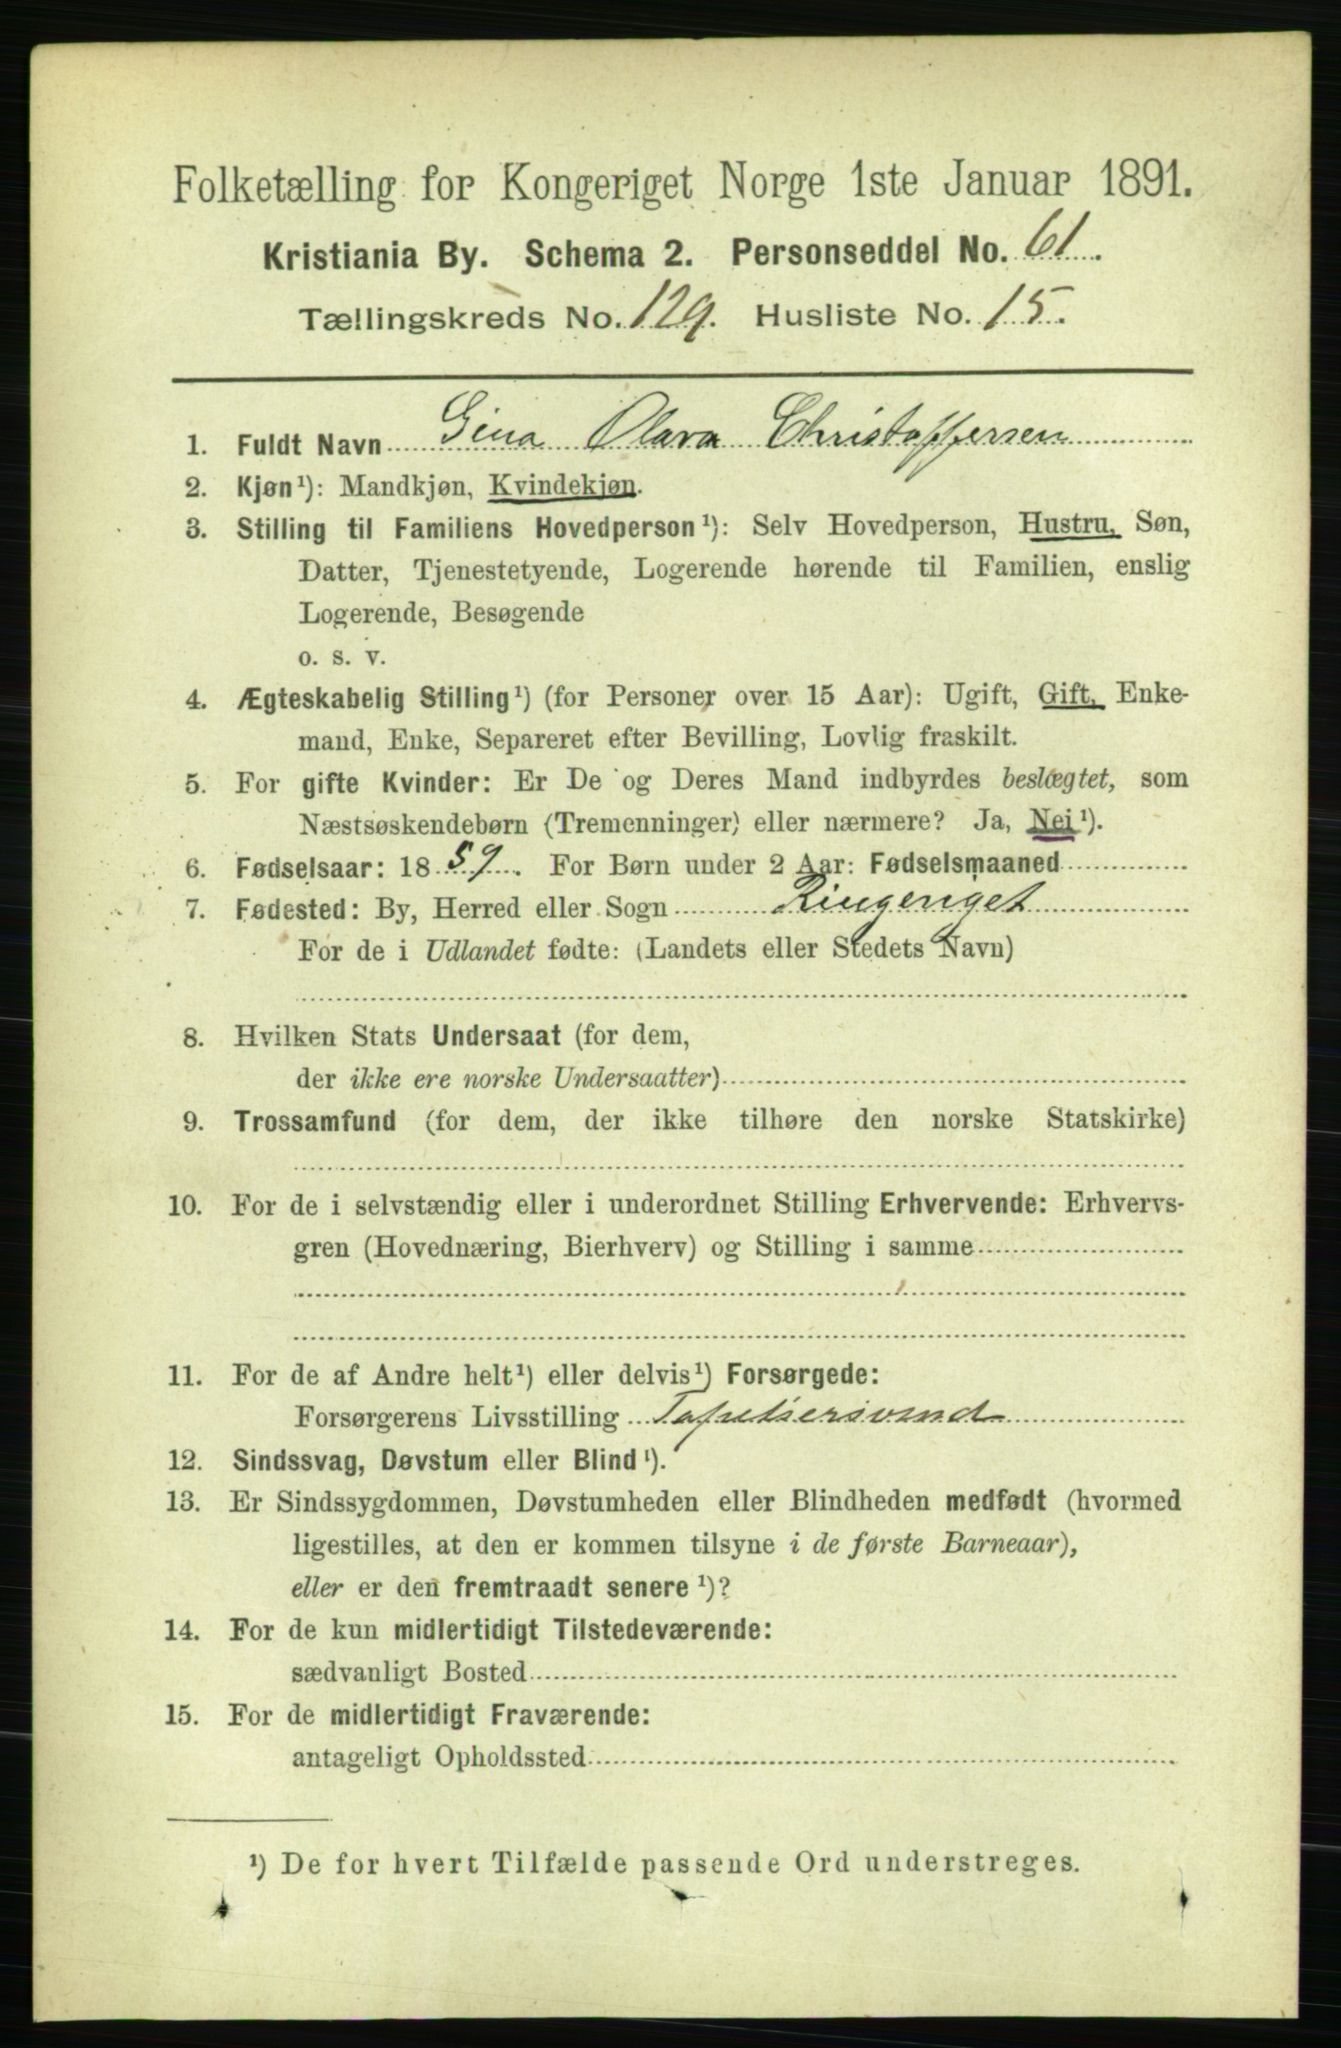 Folketælling for Kongeriget Norge 1ste Januar 1891.
Kristiania By. Schema 2. Personseddel No. 61.
Tællingskreds No. 129. Husliste No. 15.
1. Fuldt Navn Gina Olava Christoffersen
2. Kjøn¹): Mandkjøn, Kvindekjøn.
3. Stilling til Familiens Hovedperson¹): Selv Hovedperson, Hustru, Søn,
Datter, Tjenestetyende, Logerende hørende til Familien, enslig
Logerende, Besøgende
o. s. v.
4. Ægteskabelig Stilling¹) (for Personer over 15 Aar): Ugift, Gift, Enke-
mand, Enke, Separeret efter Bevilling, Lovlig fraskilt.
5. For gifte Kvinder: Er De og Deres Mand indbyrdes beslægtet, som
Næstsøskendebørn (Tremenninger) eller nærmere? Ja, Nei¹).
6. Fødselsaar: 1859. For Børn under 2 Aar: Fødselsmaaned
7. Fødested: By, Herred eller Sogn Ringeriget
For de i Udlandet fødte: (Landets eller Stedets Navn)
8. Hvilken Stats Undersaat (for dem,
der ikke ere norske Undersaatter)
9. Trossamfund (for dem, der ikke tilhøre den norske Statskirke)
10. For de i selvstændig eller i underordnet Stilling Erhvervende: Erhvervs-
gren (Hovednæring, Bierhverv) og Stilling i samme
11. For de af Andre helt¹) eller delvis¹) Forsørgede:
Forsørgerens Livsstilling Tapetsersvend
12. Sindssvag, Døvstum eller Blind¹).
13. Er Sindssygdommen, Døvstumheden eller Blindheden medfødt (hvormed
ligestilles, at den er kommen tilsyne i de første Barneaar),
eller er den fremtraadt senere¹)?
14. For de kun midlertidigt Tilstedeværende:
sædvanligt Bosted
15. For de midlertidigt Fraværende:
antageligt Opholdssted
¹) De for hvert Tilfælde passende Ord understreges.